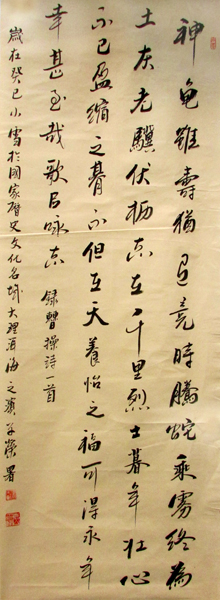 神龜雖壽猶有竟時騰蛇乘雾终為
土灰老驥伏枥志在千里烈士暮年壮心
不已盈缩之期不但在天養怡之福可得永年
幸甚至哉歌以咏志 録曹操詩一首
歲在癸巳小雪於國家歷史文化名城大理洱海之濱榮署